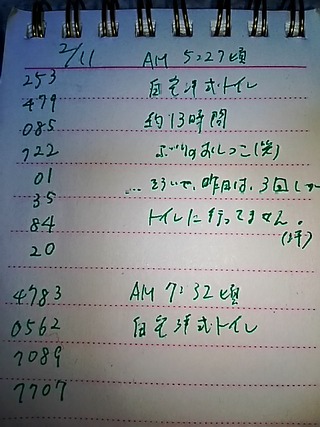 2/11 AM 5:27頃
253 自宅洋式トイレ
479
085 約13時間
722 ぶりのおしっこ(笑)
01
35 …そういで、昨日は、3回しか
84 トイレに行ってません。
20 (汗)
4783 AM 7:32頃
0562 自宅洋式トイレ
7089
7707